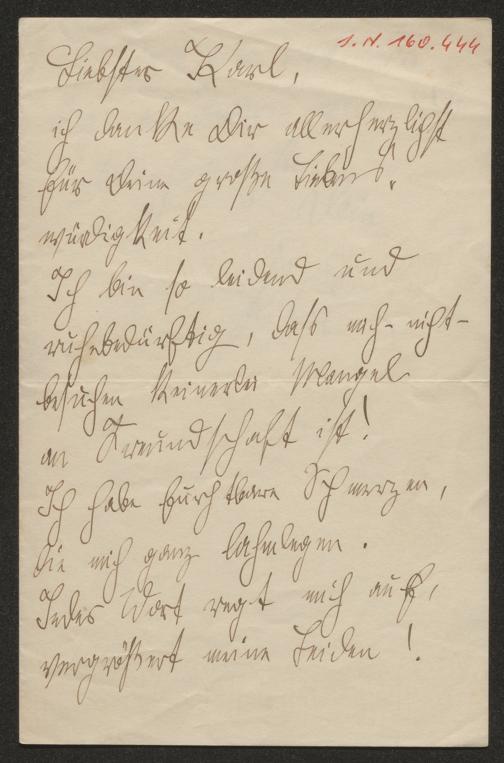 J. N. 160.444
Liebster Karl,
ich danke Dir allerherzlichst
für Deine große Liebens-
würdigkeit.
Ich bin so leidend und
ruhebedürftig, dass nicht-
besuchen keinerlei Mangel
an Freundschaft ist!
Ich habe furchtbare Schmerzen,
die mich ganz lahmlegen.
Jedes Wort regt mich auf,
vergrößert meine Leiden!